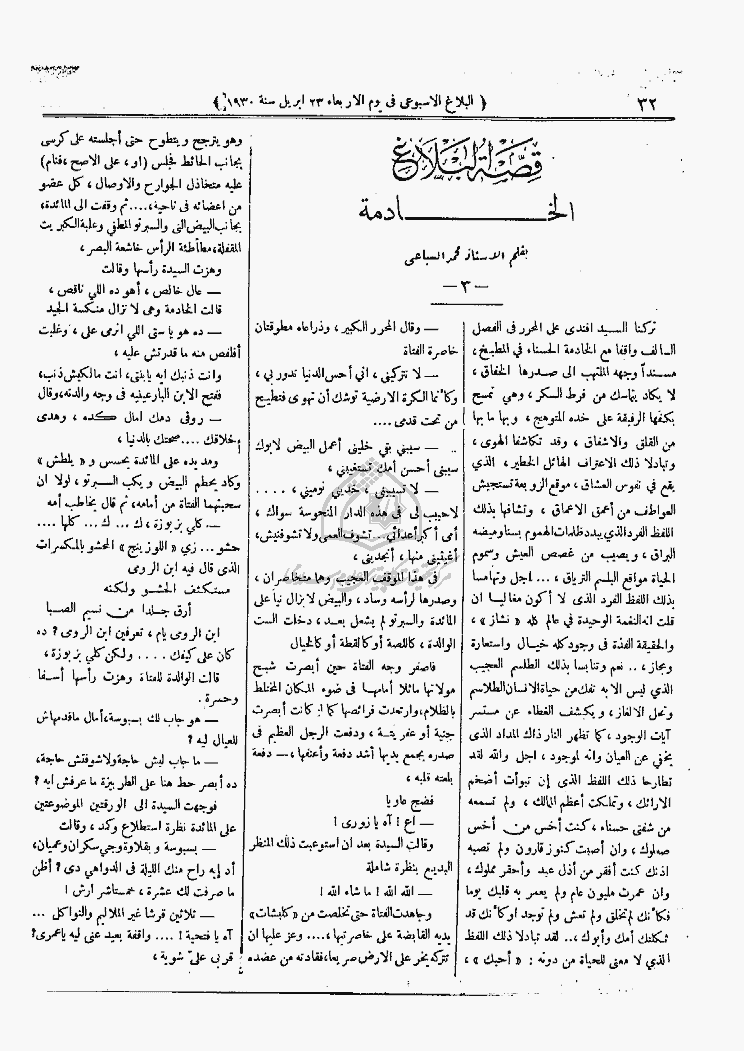 ٣٢
﴿ البلاغ الاسبوعى فى يوم الاربعاء ٢٣ ابريل سنة ١٩٣٠ ﴾
قصة البلاغ
الخـــــادمة
بقلم الاستاذ محمد السباعى
— ٣ —
تركنا السيد افندى على المحرر فى الفصل
السالف واقفا مع الخادمة الحسناء فى المطبخ ،
مسنداً وجهه الملتهب الى صدرها الخفاق ،
لا يكاد يتماسك من فرط السكر ، وهي تمسح
بكفها الرفيقة على خده المتوهج ، وبها ما بها
من القلق والاشفاق ، وقد تكاشفا الهوى ،
وتبادلا ذلك الاعتراف الهائل الخطير ، الذي
يقع في نفوس العشاق ، موقع الزوبعة تستجيش
العواطف من أعمق الاعماق ، وتشافها بذلك
اللفظ الفرد الذي يبدد ظلمات الهموم بسنا وميضه
البراق ، ويصيب من غصص العيش وسموم
الحياة مواقع البلسم الترياق ، ... اجل وتهامسا
بذلك اللفظ الفرد الذى لا أكون مغاليا ان
قلت انه النغمة الوحيدة في عالم كله « نشاز » ،
والحقيقة الفذة فى وجود كله خيال واستعارة
ومجاز ، .. نعم وتنابسا بذلك الطلسم العجيب
الذي ليس الا به تفك من حياة الانسان الطلاسم
وتحل الالغاز ، ويكشف الغطاء عن مستسر
آيات الوجود ، كما تظهر النار ذاك المداد الذى
يخفي عن العيان وانه لموجود ، اجل والله لقد
تطارحا ذلك اللفظ الذى إن تبوأت أضخم
الارائك ، وتملكت أعظم الممالك ، ولم تسمعه
من شفتى حسناء ، كنت أخس من أخس
صعلوك ، وان أصبت كنوز قارون ولم تصبه
اذنك كنت أفقر من أذل عبد وأحقر مملوك ،
وان عمرت مليون عام ولم يعمر به قلبك يوما
فكأنك لم تخلق ولم تعش ولم توجد اوكأنك قد
ثكلتك أمك وأبوك ... لقد تبادلا ذلك اللفظ
الذي لا معنى للحياة من دونه : « أحبك » ،
— وقال المحرر الكبير ، وذراعاه مطوقتان
خاصرة الفتاة
— لا تتركيني ، اني أحس الدنيا تدور بي ،
وكأنما الكرة الارضية توشك أن تهوى فتطيح
من تحت قدمى ....
— سيبني بقي خليني أعمل البيض لابوك
سيبنى أحسن امك تستغيبني ،
— لا تسيبيني ، خديني نوميني ، ....
لاحبيب لى فى هذه الدار المنحوسة سواك ،
أمى أكبر أعدائي ... تشوف العمى ولا تشوفنيش،
أغيثيني منها ، أنجديني ،
فى هذا الموقف العجيب وهما متخاصران ،
وصدرها لرأسه وساد ، والبيض لا يزال نيأ على
المائدة والسبرتو لم يشعل بعد ، دخلت الست
الوالدة ، كاللصة أو كالقطة أو كالخيال
فاصفر وجه الفتاة حين أبصرت شبح
مولاتها ماثلا أمامها فى ضوء المكان المختلط
بالظلام، وارتعدت فرائصها كما لو كانت أبصرت
جنية أو عفريتة ، ودفعت الرجل العظيم فى
صدره بجمع يديها أشد دفعة وأعنفها ، — دفعة
بلعته قلبه ،
فضج عاويا
— اع ! آه يا زورى !
وقالت السيدة بعد ان استوعبت ذلك المنظر
البديع بنظرة شاملة
— الله الله ! ما شاء الله !
وجاهدت الفتاة حتى تخلصت من «كلبشات»
يديه القابضة على خاصرتها ، ... وعز عليها ان
تتركه يخر على الارض صريعا، فقادته من عضده
وهو يترجح ويتطوح حتى أجلسته على كرسى
بجانب الحائط فجلس (او ، على الاصح ، فنام)
عليه متخاذل الجوارح والاوصال ، كل عضو
من اعضائه فى ناحية ، ... ثم وقفت الى المائدة،
بجانب البيض النى والسبرتو المطفي وعلبة الكبريت
المقفلة ، مطأطئة الرأس خاشعة البصر ،
وهزت السيدة رأسها وقالت
— عال خالص ، أهو ده اللي ناقص ،
قالت الخادمة وهى لا تزال منكسة الجيد
— ده هو يا ستى اللي انرمى على ، وغلبت
أفلفص منه ما قدرتش عليه ،
وانت ذنبك ايه يابنتى، انت مالكيش ذنب،
ففتح الابن البار عينيه فى وجه والدته، وقال
— روقى دمك امال كده ، وهدى
أخلاقك .... صحتك بالدنيا ،
ومد يده على المائدة يحسس و « يلطش »
وكاد يحطم البيض ويكب السبرتو ، لولا ان
سحبتهما الفتاة من أمامه، ثم قال يخاطب أمه
— كلي بزبوزة ، ك ... ك ... كلها ....
حشو ... زي « اللوزينج » المحشو بالمكسرات
الذى قال فيه ابن الرومى
مستكثف الحشو ولكنه
أرق جلدا من نسيم الصبا
ابن الرومى يام ، تعرفين ابن الرومى ؟ ده
كان على كيفك .... ولكن كلي بزبوزة ،
قالت الوالدة للفتاة وهزت رأسها أسفا
وحسرة .
— هو جاب لك بسبوسة ، أمال ما قدمهاش
للعيال ليه ؟
— ما جاب ليش حاجة ولا شوفتش حاجة،
ده أبصر حط هنا على الطربيزة ما عرفش ايه ؟
فوجهت السيدة الى الورقتين الموضوعتين
على المائدة نظرة استطلاع وكمد ، وقالت
— بسبوسة و بقلاوة وجي سكران وعميان،
أد إيه راح منك الليلة فى الدواهي دى ؟ أظن
ما صرفت لك عشرة ، خمستاشر ارش !
— ثلاثين قرشا غير الملاليم والنواكل ...
آه يا فتحية ! .... واقفة بعيد عنى ليه ياعمرى؟
قربى على شوية ،